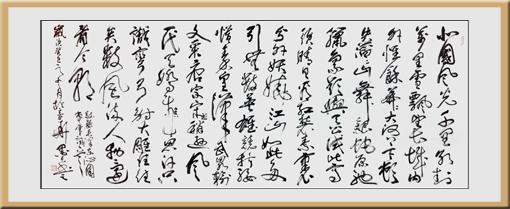 北國風光千里冰封
萬里雪飄望長城內
外惟餘莽莽大河上下頓
失滔滔山舞銀蛇原馳
蠟象欲與天公試比高
須晴日看紅裝素裹
分外妖嬈江山如此多嬌
引無數英雄競折腰
惜秦皇漢武略輸
文采唐宗宋祖稍遜風
騷一代天驕成吉思汗只
識彎弓射大雕俱往
矣數風流人物還
看今朝